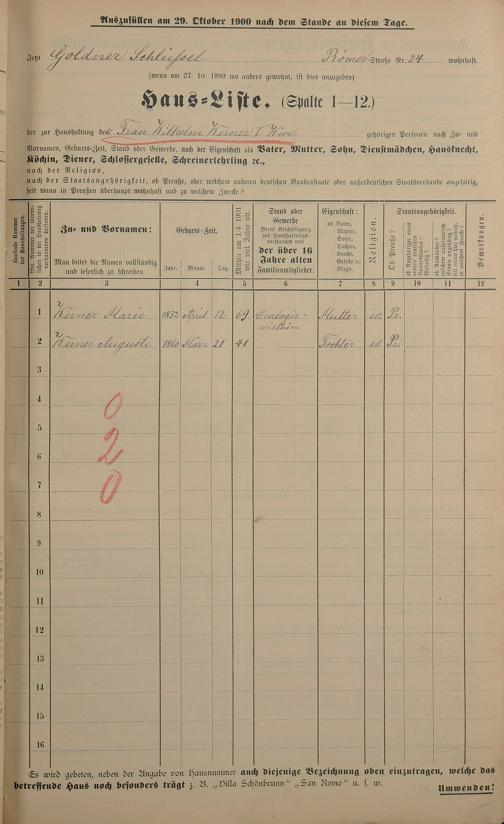 Auszufüllen am 29. Oktober 1900 nach dem Stande an diesem Tage.
Jetzt Goldner Schlüssel Römer Straße Nr. 24 wohnhaft.
(wenn am 27. 10. 1899 wo anders gewohnt, ist dies anzugeben)
Haus-Liste. (Spalte 1—12.)
der zur Haushaltung des Frau Wilhelm Werner I Wwe. gehörigen Personen nach Zu- und
Vornamen, Geburts-Zeit, Stand oder Gewerbe, nach der Eigenschaft als Vater, Mutter, Sohn, Dienstmädchen, Hausknecht,
Köchin, Diener, Schlossergeselle, Schreinerlehrling ec.,
nach der Religion,
nach der Staatsangehörigkeit, ob Preuße, oder welchem anderen deutschen Bundesstaate oder außerdeutschen Staatsverbande angehörig,
seit wann in Preußen überhaupt wohnhaft und zu welchem Zwecke?
Zu- und Vornamen:
Man bittet die Namen vollständig und leserlich zu schreiben.
Geburts-Zeit.
Jahr. Monat. Tag
Mithin am 1/4 1901 wie viel Jahre alt.
Stand oder Gewerbe
der über 16 Jahre alten Familienmitglieder.
Eigenschaft:
ob Vater, Mutter, Sohn, Tochter, Knecht, Geselle oc. Magd.
Religion.
Staatsangehörigkeit.
Ob Preuße?
Bemerkungen.
1 2 3 4 5 6 7 8 9 10 11 12
1 Werner Marie 1832 April 12 69 Curlogir-wirthin Mutter ev. Pr.
2 Werner Auguste 1860 März 21 41 Tochter ev. Pr.
3
4
0
5
2
6
0
7
8
9
10
11
12
13
14
15
16
Es wird gebeten, neben der Angabe von Hausnummer auch diejenige Bezeichnung oben einzutragen, welche das
betreffende Haus noch besonders trägt z. B. „Villa Schönbrunn" „San Remo" u. s. w.
Umwenden!